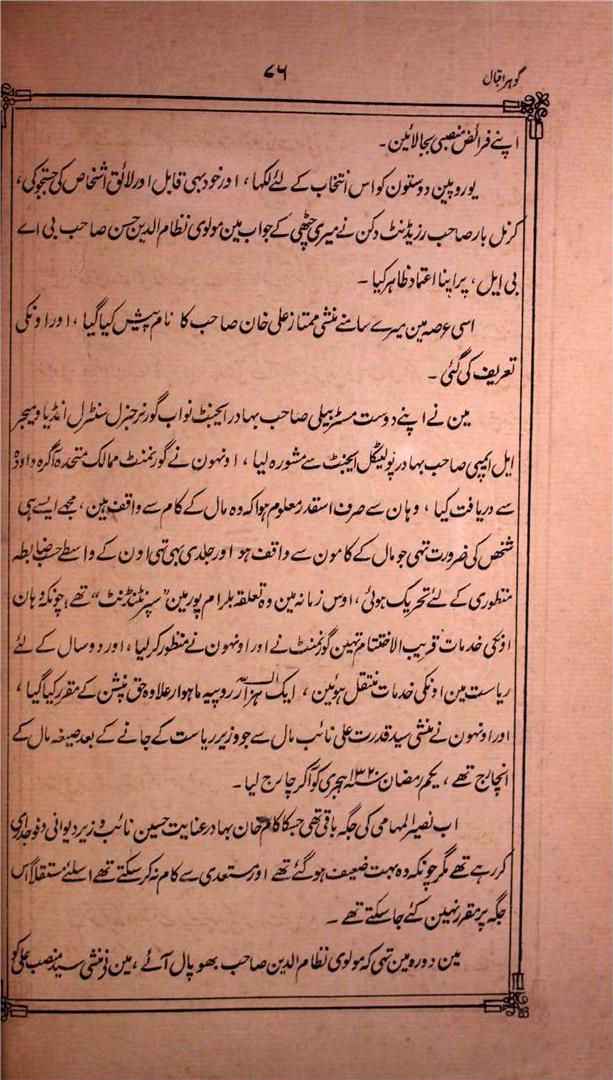 گوہر اقبال
۷۶
اپنے فرائض منصبی بجالائین ۔
یوروپین دوستون کو اس انتخاب کے لئے لکھا ، اور خود بھی قابل اور لائق اشخاص کی جستجو کی ،
کرنل بار صاحب رزیڈنٹ دکن نے میری چٹھی کے جواب مین مولوی نظام الدین حسن صاحب بی اے
بی ایل ، پر اپنا اعتماد ظاہر کیا ۔
اسی عرصہ مین میرے سامنے منشی ممتاز علی خان صاحب کا نام پیش کیا گیا ، اور اونکی
تعریف کی گئی ۔
مین نے اپنے دوست مسٹر بیلی صاحب بہادر ایجنٹ نواب گورنر جنرل سنٹرل انڈیا و میجر
ایل ایمپی صاحب بہادر پولیٹکل ایجنٹ سے مشورہ لیا ، اونہون نے گورنمنٹ ممالک متحدہ آگرہ و اودہ
سے دریافت کیا ، وہان سے صرف اسقدر معلوم ہوا کہ وہ مال کے کام سے واقف ہین ، مجھے ایسے ہی
شخص کی ضرورت تھی جو مال کے کامون سے واقف ہو اور جلدی بھی تھی اون کے واسطے حسب ضابطہ
منظوری کے لئے تحریک ہوئی ، اوس زمانہ مین وہ تعلقہ بلرام پور مین "سپرنٹنڈنٹ" تھے ، چونکہ وہان
اونکی خدمات قریب الاختتام تہین گورنمنٹ نے اور اونہون نے منظور کر لیا ، اور دو سال کے لئے
ریاست مین اونکی خدمات منتقل ہوئین ، ایک ہزار روپیہ ماہوار علاوہ حق پنشن کے مقرر کیا گیا ،
اور اونہون نے منشی سید قدرت علی نائب مال سے جو وزیر ریاست کے جانے کے بعد صیغہ مال کے
انچارج تھے ، یکم رمضان ۱۳۲۰ ہجری کو آکر چارج لیا ۔
اب نصیر المہامی کی جگہ باقی تھی جسکا کام خان بہادر عنایت حسین نائب وزیر دیوانی و فوجداری
کر رہے تھے مگر چونکہ وہ بہت ضعیف ہو گئے تھے اور مستعدی سے کام نہ کر سکتے تھے اسلئے مستقلاً اس
جگہ پر مقرر نہین کئے جا سکتے تھے ۔
مین دورہ مین تھی کہ مولوی نظام الدین صاحب بھوپال آئے ، مین نے منشی سید منصب علی کو